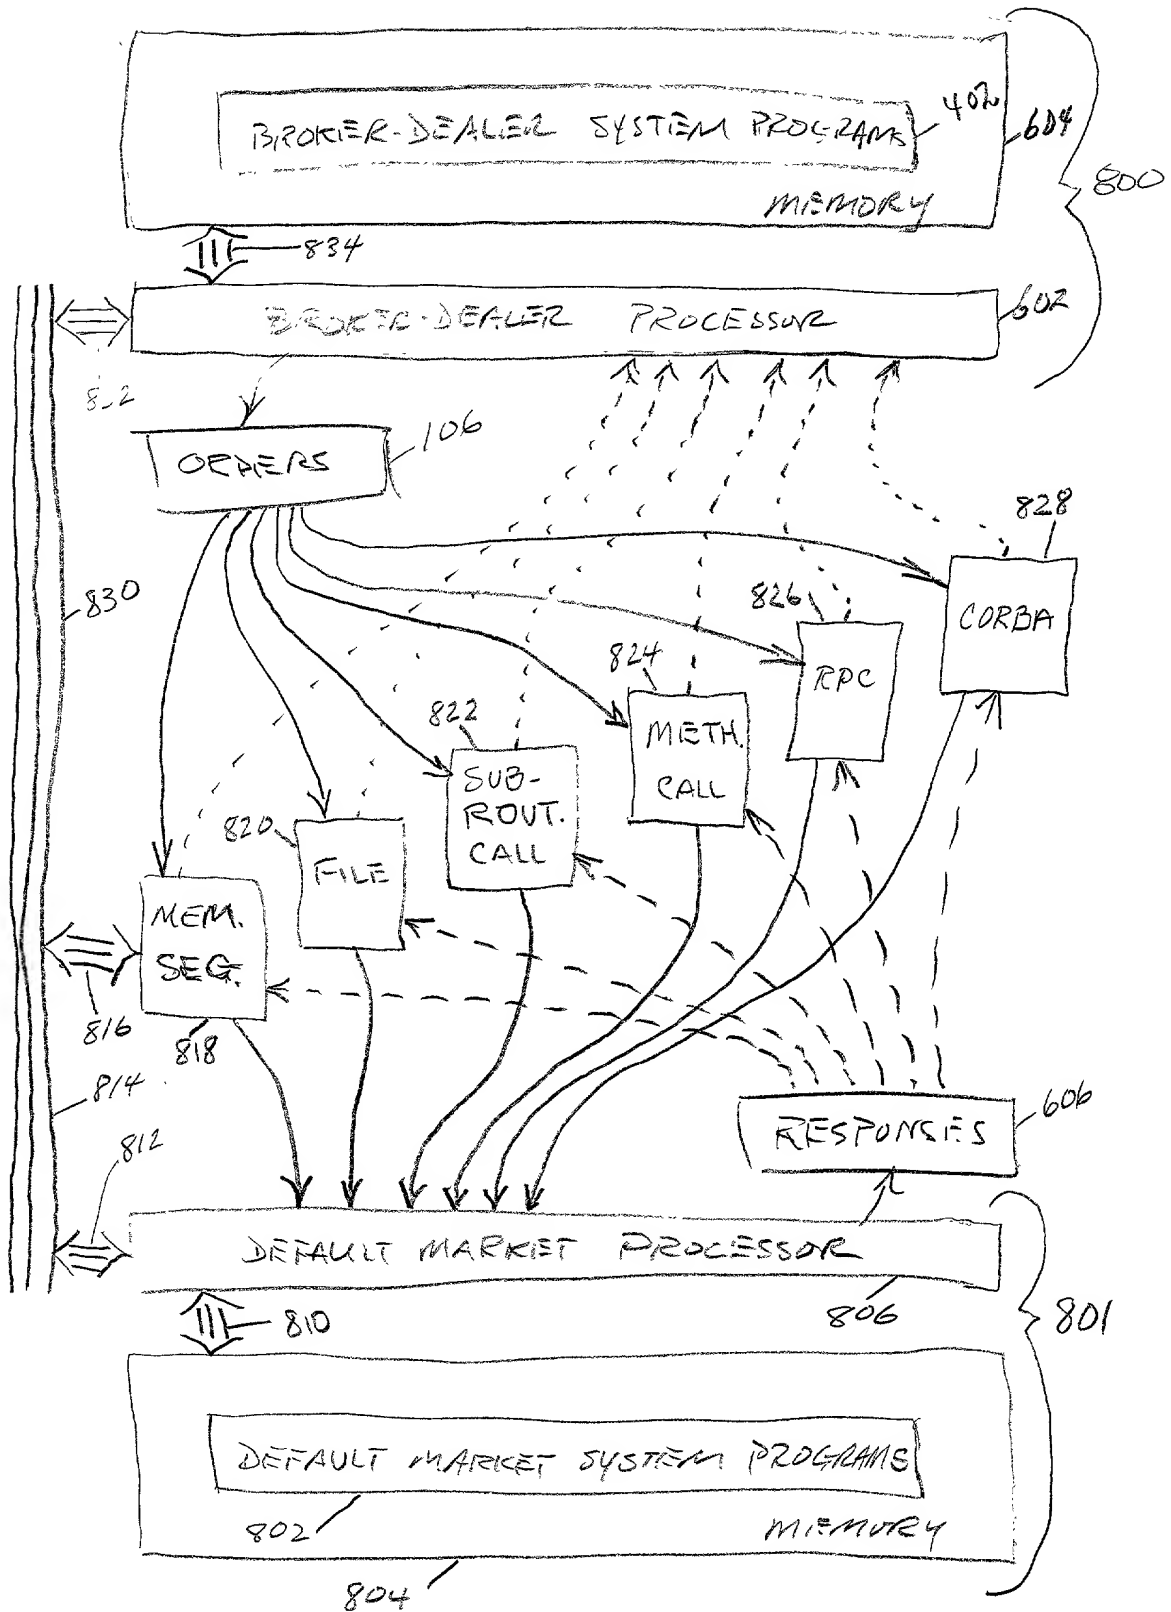 402
BROKER-DEALER SYSTEM PROGRAMS
604
800
MEMORY
834
602
BROKER-DEALER PROCESSOR
106
ORDERS
828
830
826
CORBA
824
RPC
822
METH.
CALL
SUB-
ROUT.
CALL
820
FILE
MEM.
SEG.
816
818
814
606
RESPONSES
812
DEFAULT MARKET PROCESSOR
810
806
801
DEFAULT MARKET SYSTEM PROGRAMS
802
MEMORY
804